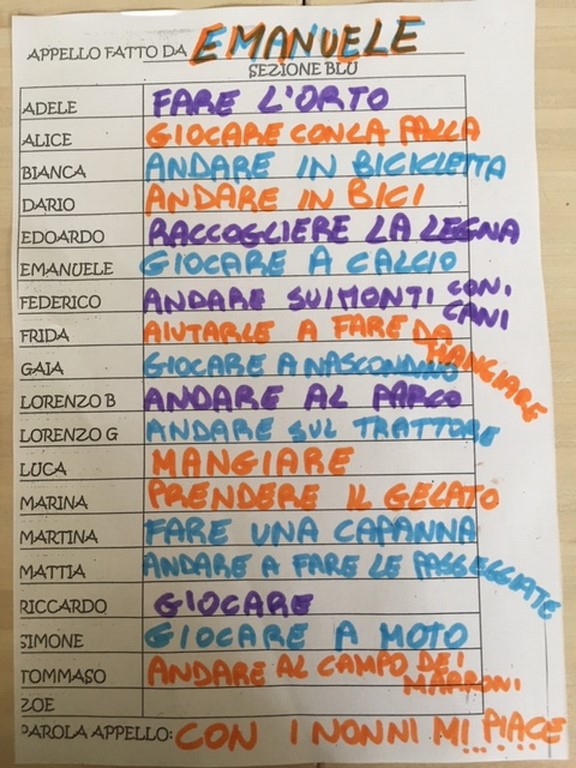 APPELLO FATTO DA EMANUELE
SEZIONE BLU
ADELE FARE L'ORTO
ALICE GIOCARE CON LA PALLA
BIANCA ANDARE IN BICICLETTA
DARIO ANDARE IN BICI
EDOARDO RACCOGLIERE LA LEGNA
EMANUELE GIOCARE A CALCIO
FEDERICO ANDARE SUI MONTI CON I CANI
FRIDA AIUTARLE A FARE DA MANGIARE
GAIA GIOCARE A NASCONDINO
LORENZO B ANDARE AL PARCO
LORENZO G ANDARE SUL TRATTORE
LUCA MANGIARE
MARINA PRENDERE IL GELATO
MARTINA FARE UNA CAPANNA
MATTIA ANDARE A FARE LE PASSEGGIATE
RICCARDO GIOCARE
SIMONE GIOCARE A MOTO
TOMMASO ANDARE AL CAMPO DEI MARRONI
ZOE
PAROLA APPELLO: CON I NONNI MI PIACE......